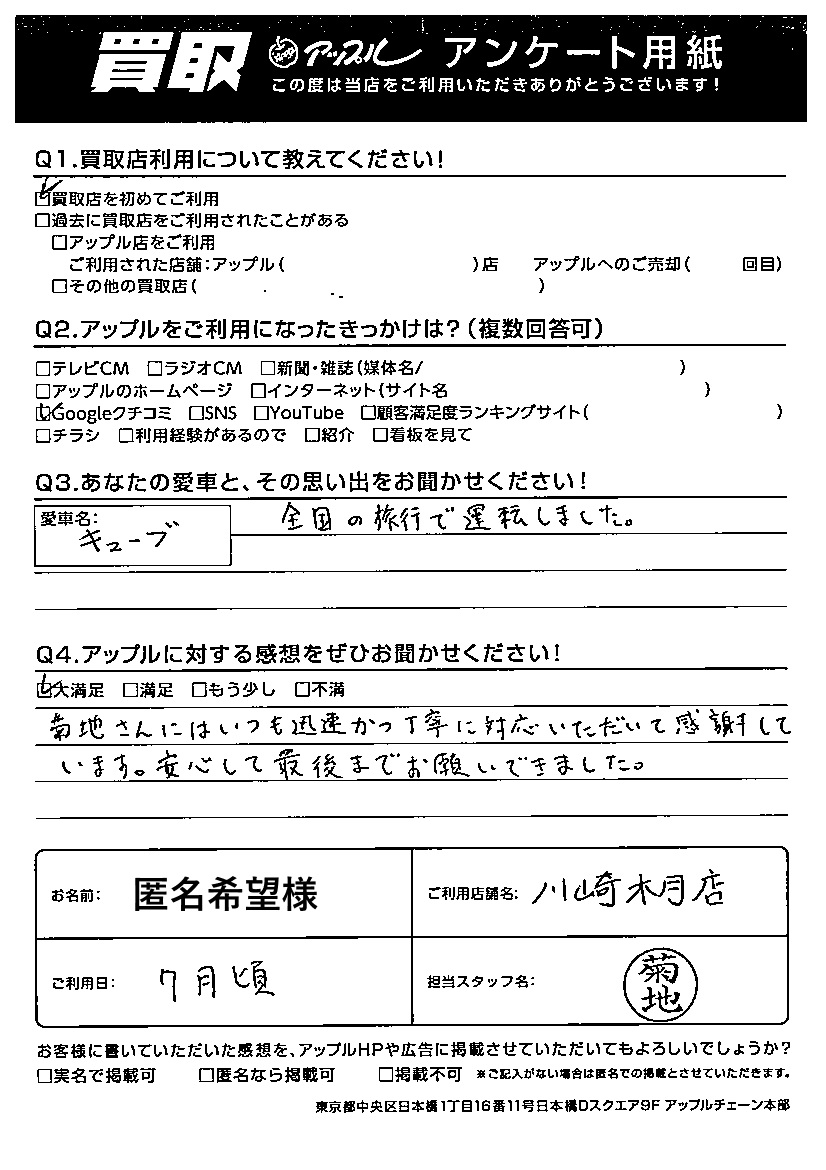 買取 アップル アンケート用紙
この度は当店をご利用いただきありがとうございます!
Q1.買取店利用について教えてください!
☑買取店を初めてご利用
□過去に買取店をご利用されたことがある
□アップル店をご利用
ご利用された店舗:アップル( )店 アップルへのご売却( 回目)
□その他の買取店( )
Q2.アップルをご利用になったきっかけは?(複数回答可)
□テレビCM □ラジオCM □新聞・雑誌(媒体名/ )
□アップルのホームページ □インターネット(サイト名 )
☑Googleクチコミ □SNS □YouTube □顧客満足度ランキングサイト( )
□チラシ □利用経験があるので □紹介 □看板を見て
Q3.あなたの愛車と、その思い出をお聞かせください!
愛車名:
キューブ
全国の旅行で運転しました。
Q4.アップルに対する感想をぜひお聞かせください!
☑大満足 □満足 □もう少し □不満
菊地さんにはいつも迅速かつ丁寧に対応いただいて感謝して
います。安心して最後までお願いできました。
お名前: 匿名希望様
ご利用店舗名: 川崎木月店
ご利用日: 7月頃
担当スタッフ名: 菊地
お客様に書いていただいた感想を、アップルHPや広告に掲載させていただいてもよろしいでしょうか?
□実名で掲載可 □匿名なら掲載可 □掲載不可 ※ご記入がない場合は匿名での掲載とさせていただきます。
東京都中央区日本橋1丁目16番11号日本橋Dスクエア9F アップルチェーン本部